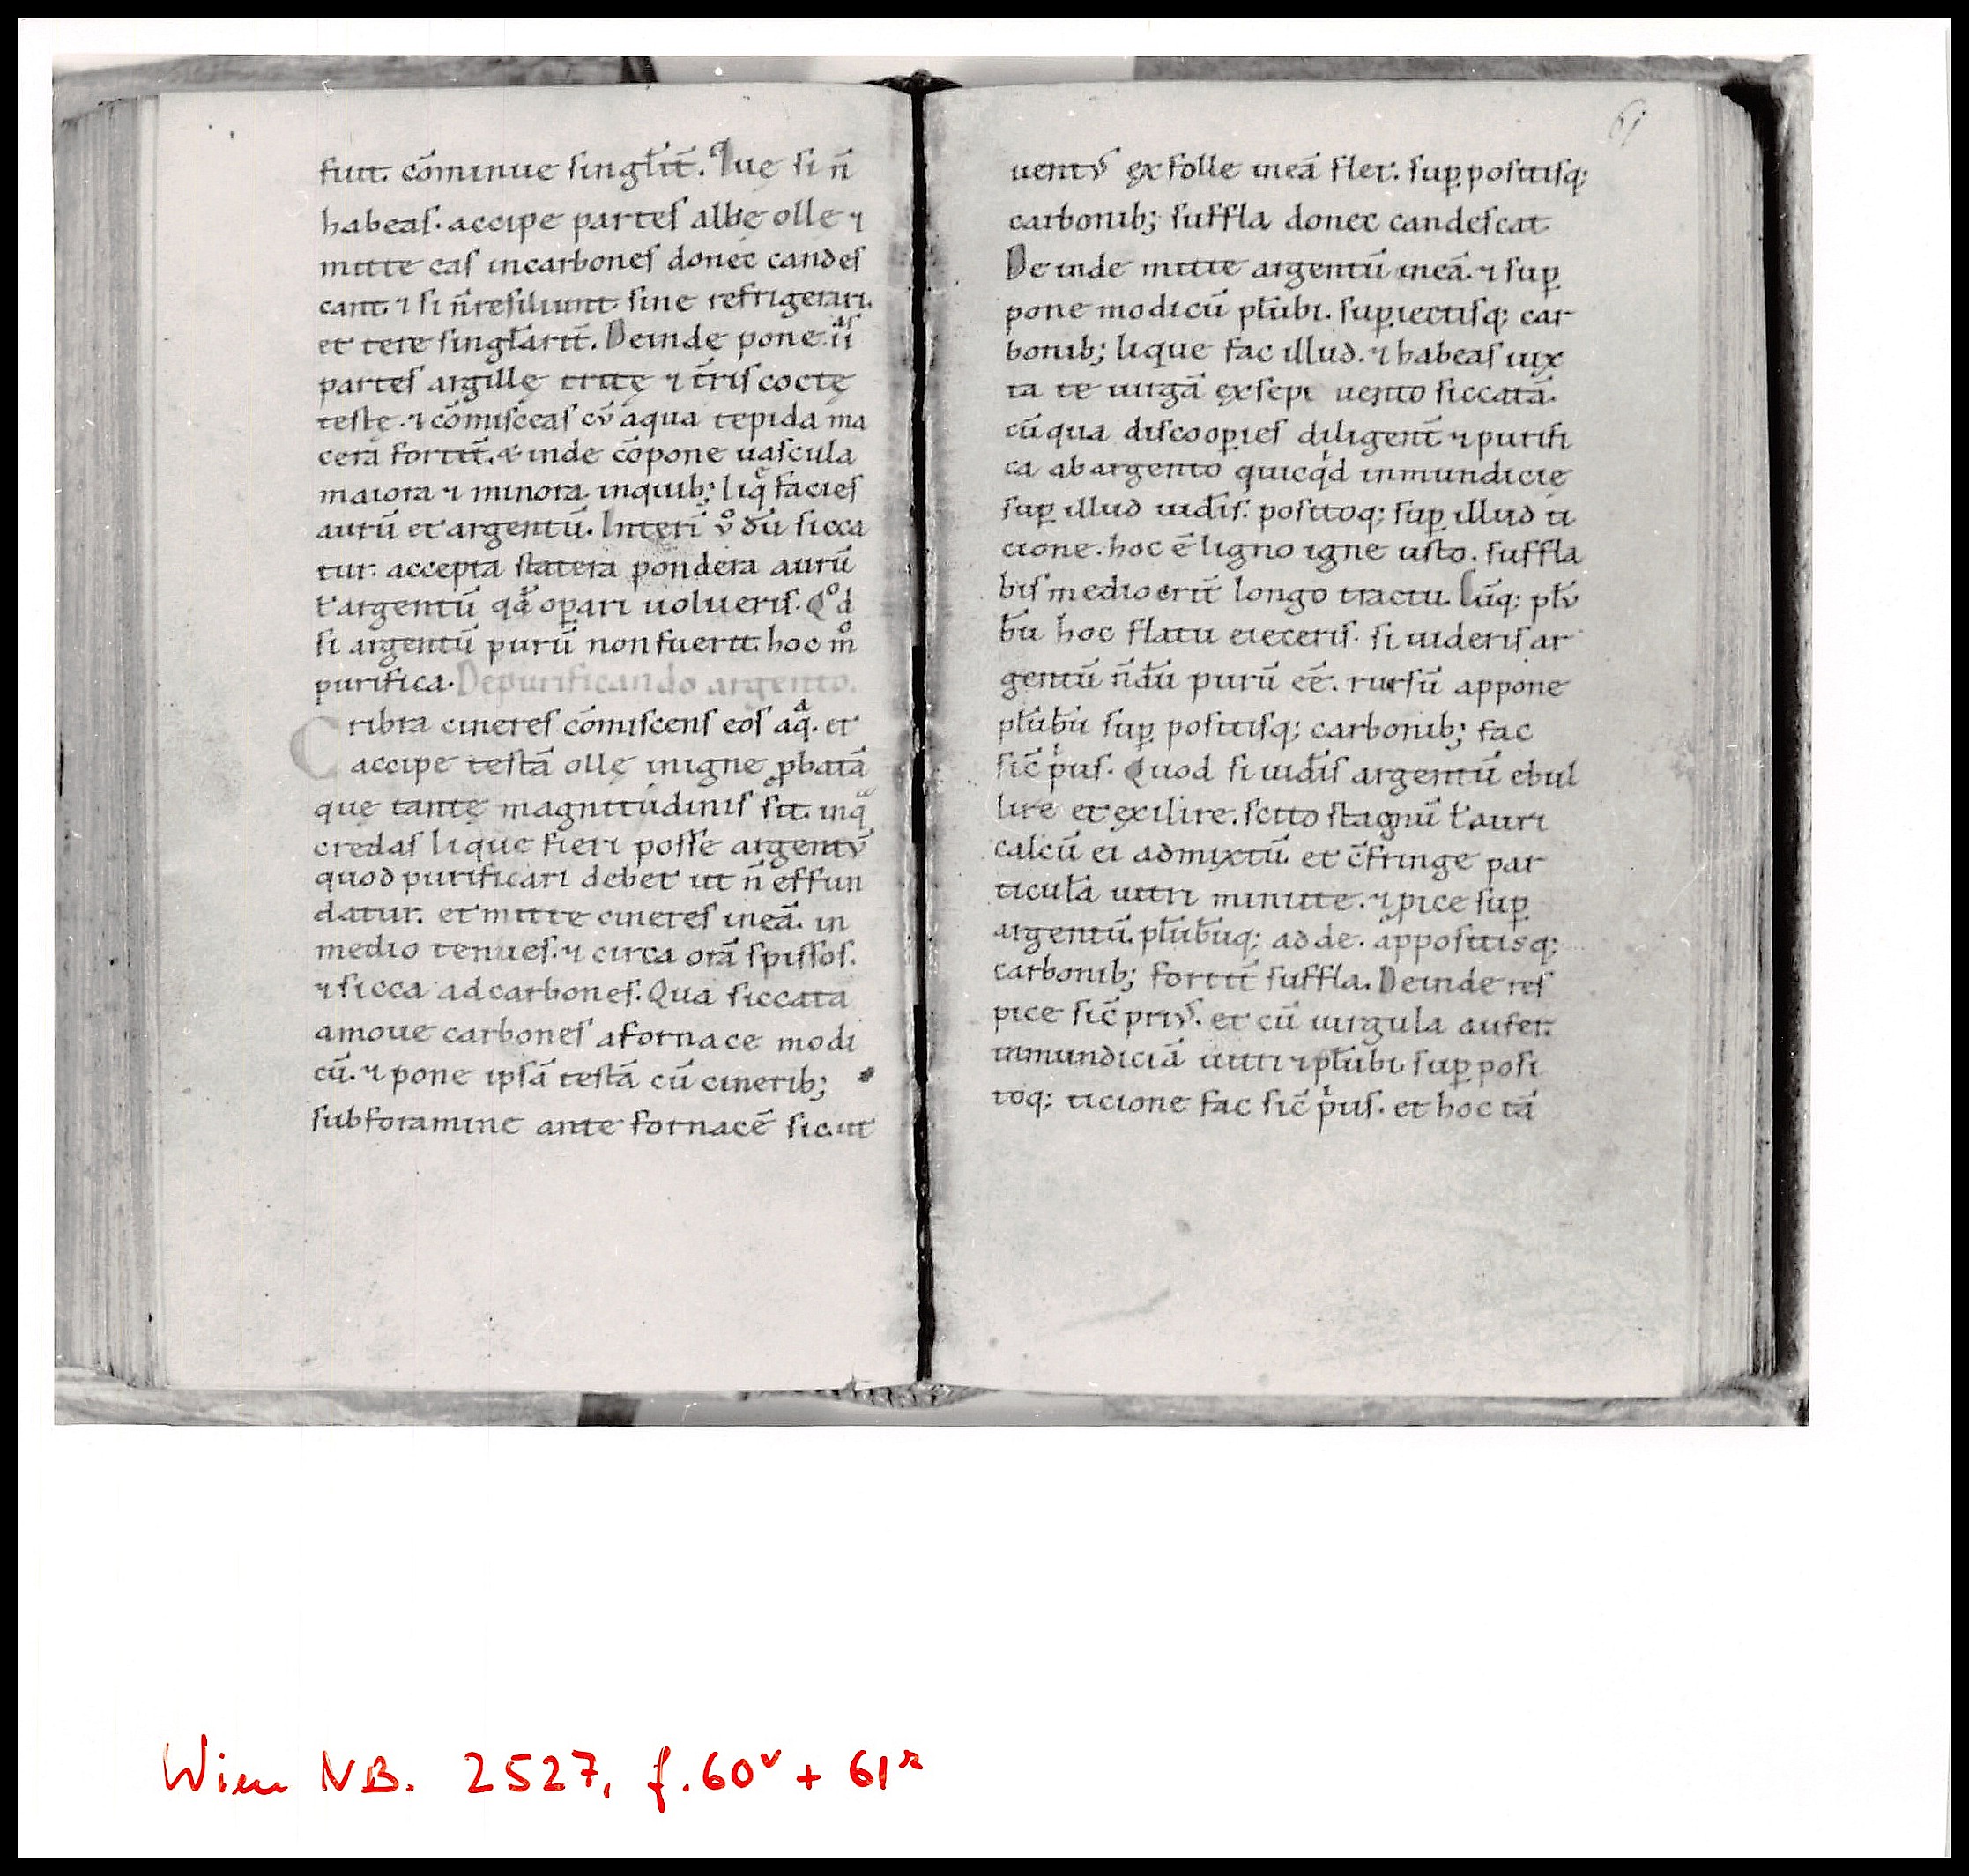 fuit. cōminue singl̄it̄. Quę si n̄
habeas. accipe partes albę olle ⁊
mitte eas incarbones donec candes
cant. ⁊ si n̄resiliunt sine refrigerari.
et tere singl̄arit̄. Deinde pone .ii.ᵃˢ
partes argillę tritę ⁊ t̄ris coctę
testę. ⁊ cōmisceas cū aqua tepida ma
cerā fortit̄. & inde cōpone uascula
maiora ⁊ minora. inquib; liq̄ facies
aurū et argentū. Interī v̊ dū sicca
tur. accepta statera pondera aurū
ł argentū qᵃ̄ oꝑari uolueris. Qᵒd
si argentū purū non fuerit. hoc m̊
purifica. Depurificando argento.
Cribra cineres cōmiscens eos aqᵃ. et
accipe testā ollę inigne ꝓbatā
que tantę magnitudinis sit. inqᵃ
credas lique fieri posse argentū
quod purificari debet ut n̄ effun
datur. et mitte cineres ineā. in
medio tenues. ⁊ circa orā spissos.
⁊ sicca adcarbones. Qua siccata
amoue carbones afornace modi
cū. ⁊ pone ipsā testā cū cinerib;
subforamine ante fornacē sicut
61
uentꝰ ex folle ineā flet. suꝑpositisq;
carbonib; suffla donec candescat
Deinde mitte argentū ineā. ⁊ suꝑ
pone modicū pl̄ubi. suꝑiectisq; car
bonib; lique fac illud. ⁊ habeas iux
ta te uirgā exsepe uento siccatā.
cū qua discooꝑies diligent̄ ⁊ purifi
ca abargento quicqͥd inmundicię
suꝑ illud uid̄is. positoq; suꝑ illud ti
cione. hoc ē ligno igne usto. suffla
bis mediocrit̄ longo tractu. Cūq; pl̄ū
bū hoc flatu eieceris. si uideris ar
gentū n̄dū purū eē. rursū appone
pl̄ūbū suꝑ positisq; carbonib; fac
sic̄ pͥus. Quod si uid̄is argentū ebul
lire et exilire. scito stagnū ł auri
calcū ei admixtū. et c̄fringe par
ticulā uitri minute. ⁊ ꝓice suꝑ
argentū. pl̄ūbūq; adde. appositisq;
carbonib; fortit̄ suffla. Deinde res
pice sic̄ priꝰ. et cū uirgula aufer.
inmundiciā uitri ⁊ pl̄ubi suꝑ posi
toq; ticione fac sic̄ pͥus. et hoc tā
Wien NB. 2527, f. 60ᵛ + 61ʳ